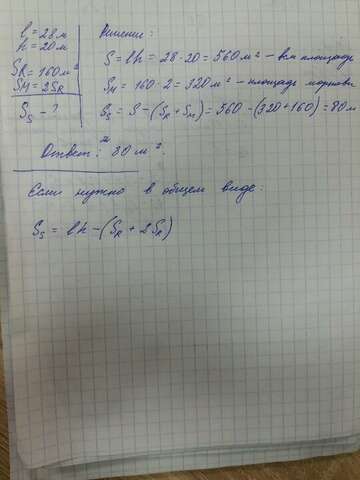 l = 28м
h = 20м
SR = 160м²
SM = 2SR
Ss - ?
Решение:
S = lh = 28 · 20 = 560 м² - вся площадь
Sм = 160 · 2 = 320 м² - площадь моркови
Ss = S - (SR + Sм) = 560 - (320 + 160) = 80м
Ответ: 80 м².
Если нужно в общем виде:
Ss = lh - (SR + 2SR)